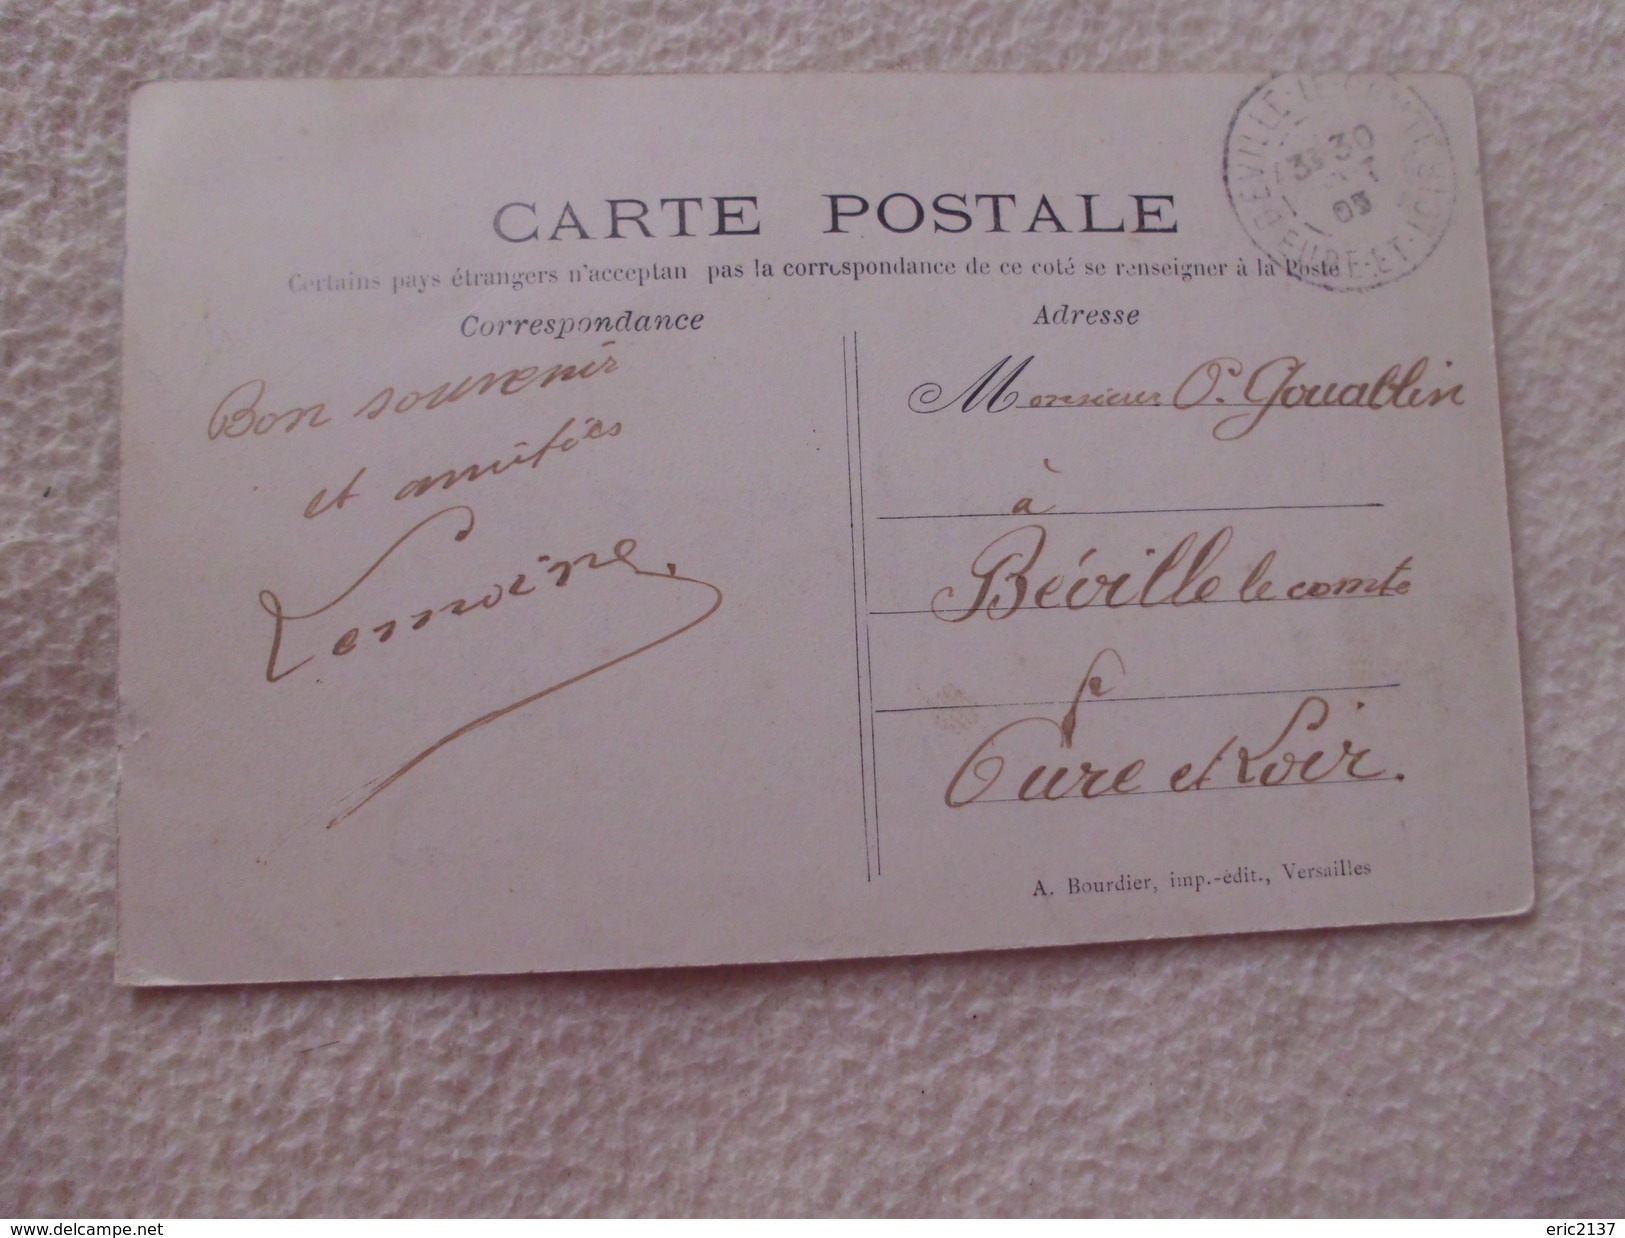 CARTE POSTALE
Certains pays étrangers n'acceptan pas la correspondance de ce coté se renseigner à la Poste
Correspondance
Bon souvenir
et amitiés
Lemoine.
Adresse
Monsieur O. Gouablin
à
Béville le comte
Eure et Loir.
A. Bourdier, imp.-édit., Versailles
BEVILLE-LE-COMTE
EURE-ET-LOIR
30
www.delcampe.net
eric2137